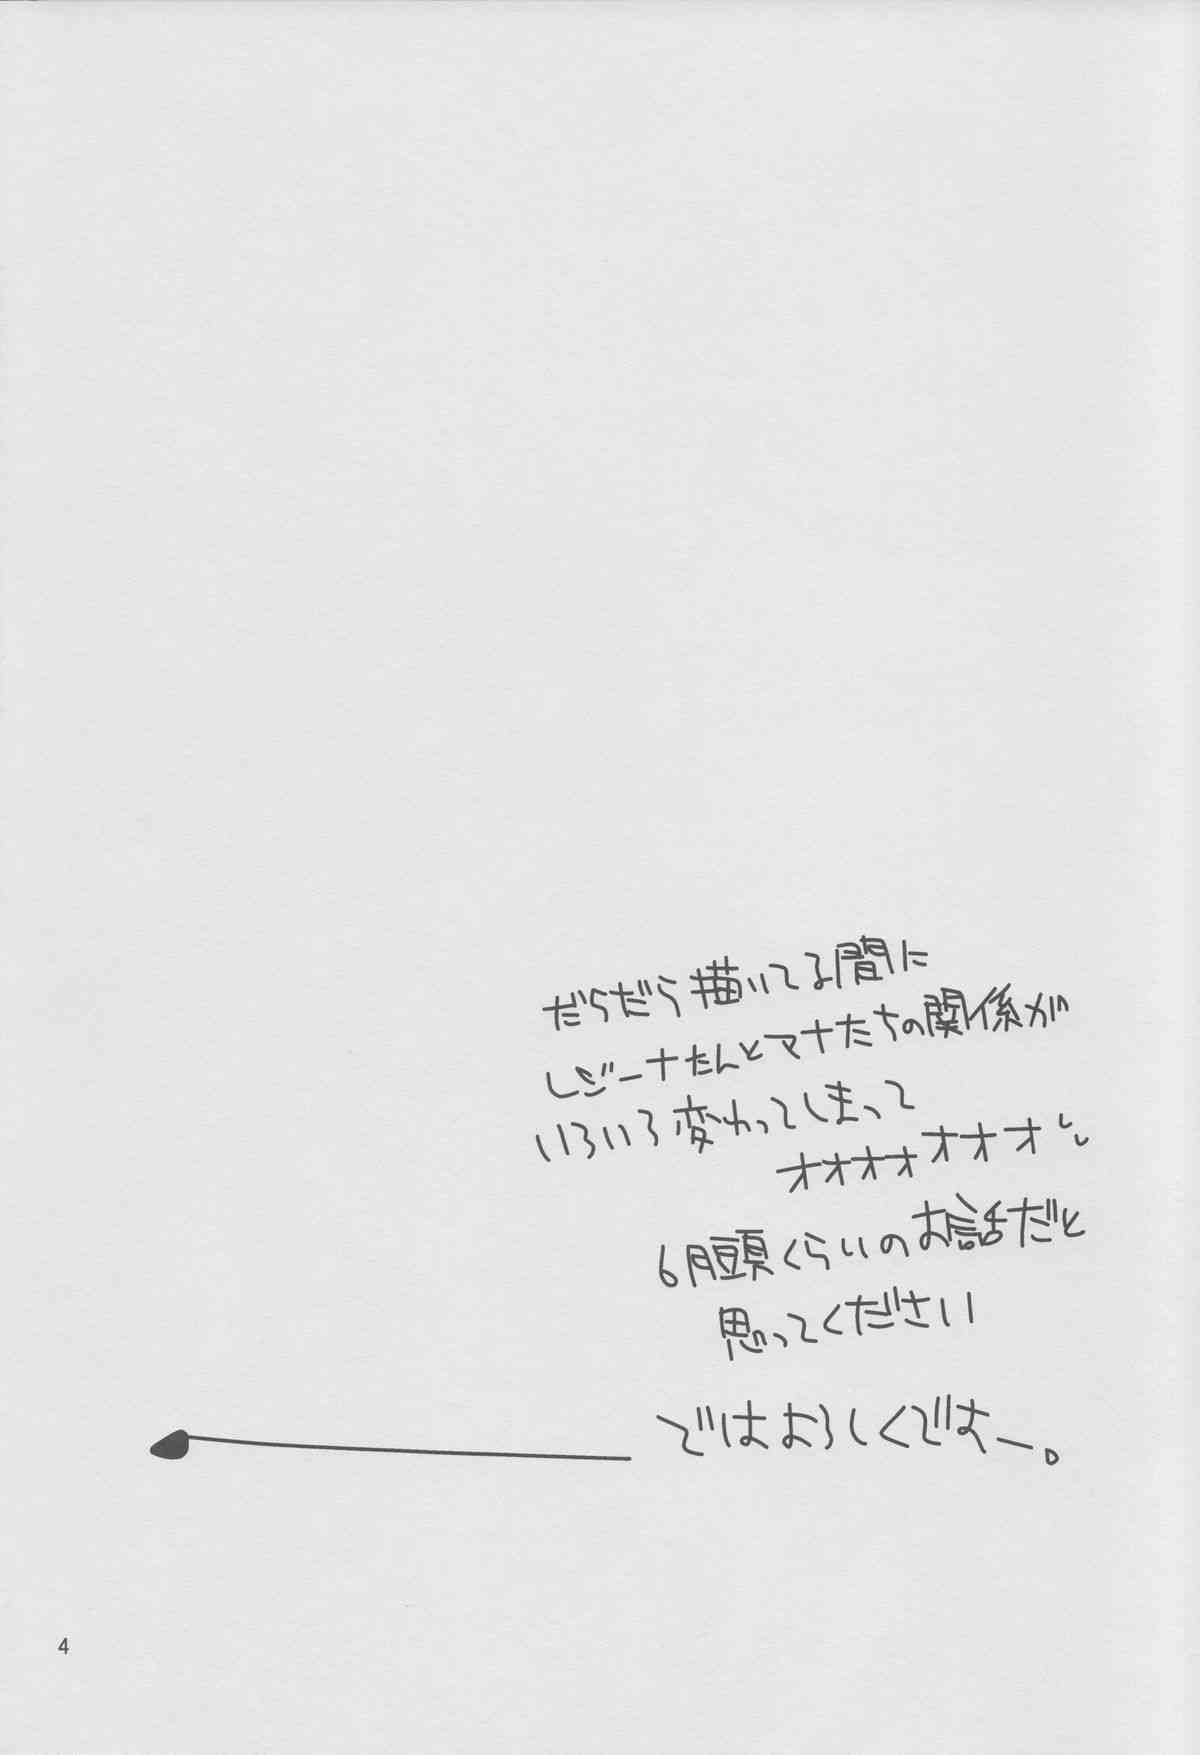 だらだら描いてる間に
レジーナたんとマナたちの関係が
いろいろ変わってしまって
オオオオオオオ
6月頭くらいのお話だと
思ってください
ではよろしくでは
4